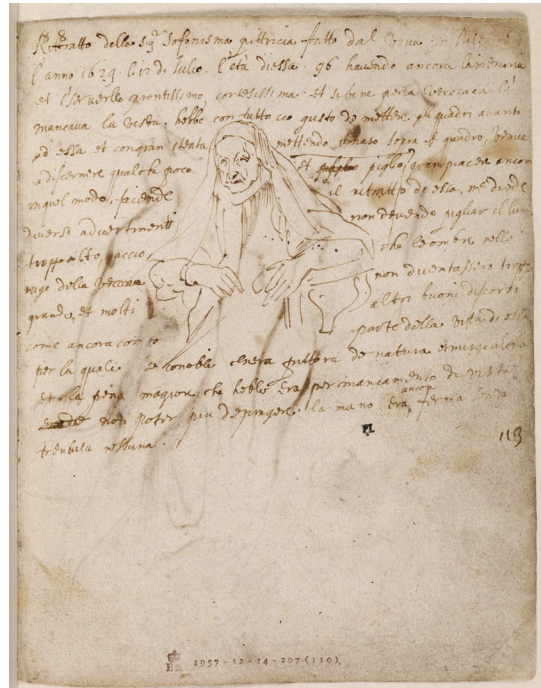 Rittratto della Sigra Sofonisma pittricia fatto dal vivo in Palermo
l'anno 1629. li 12 di Julio. l'età di essa. 96 havendo ancora la memoria
et il serverllo prontissimo cortesissima. et sebene per la vecciaia la
mancava la vista. hebbe con tutto ciò gusto de mettere gli quadri avanti
ad essa et con gran stenta mettendo il naso sopra il quadro, venne
a discernere qualche poco et piglio gran piacer ancora
in quel modo, facendo il ritratto de essa, me diede
diversi advertimenti non devendo pigliar il lume
troppo alto, acciò che le ombre nelle
ruge della vecciaia non diventassero troppo
grande, et molti altri buoni discorsi
come ancora conto parte della vita di essa
per la quale se conoble chera pittora de natura et miracolosa
et la pena magiore che hebbe era per mancamento di vista
non poter piu depingere. la mano era ancora ferma senza
tremula nessuna.
PL
113
1957-12-14-207(110)